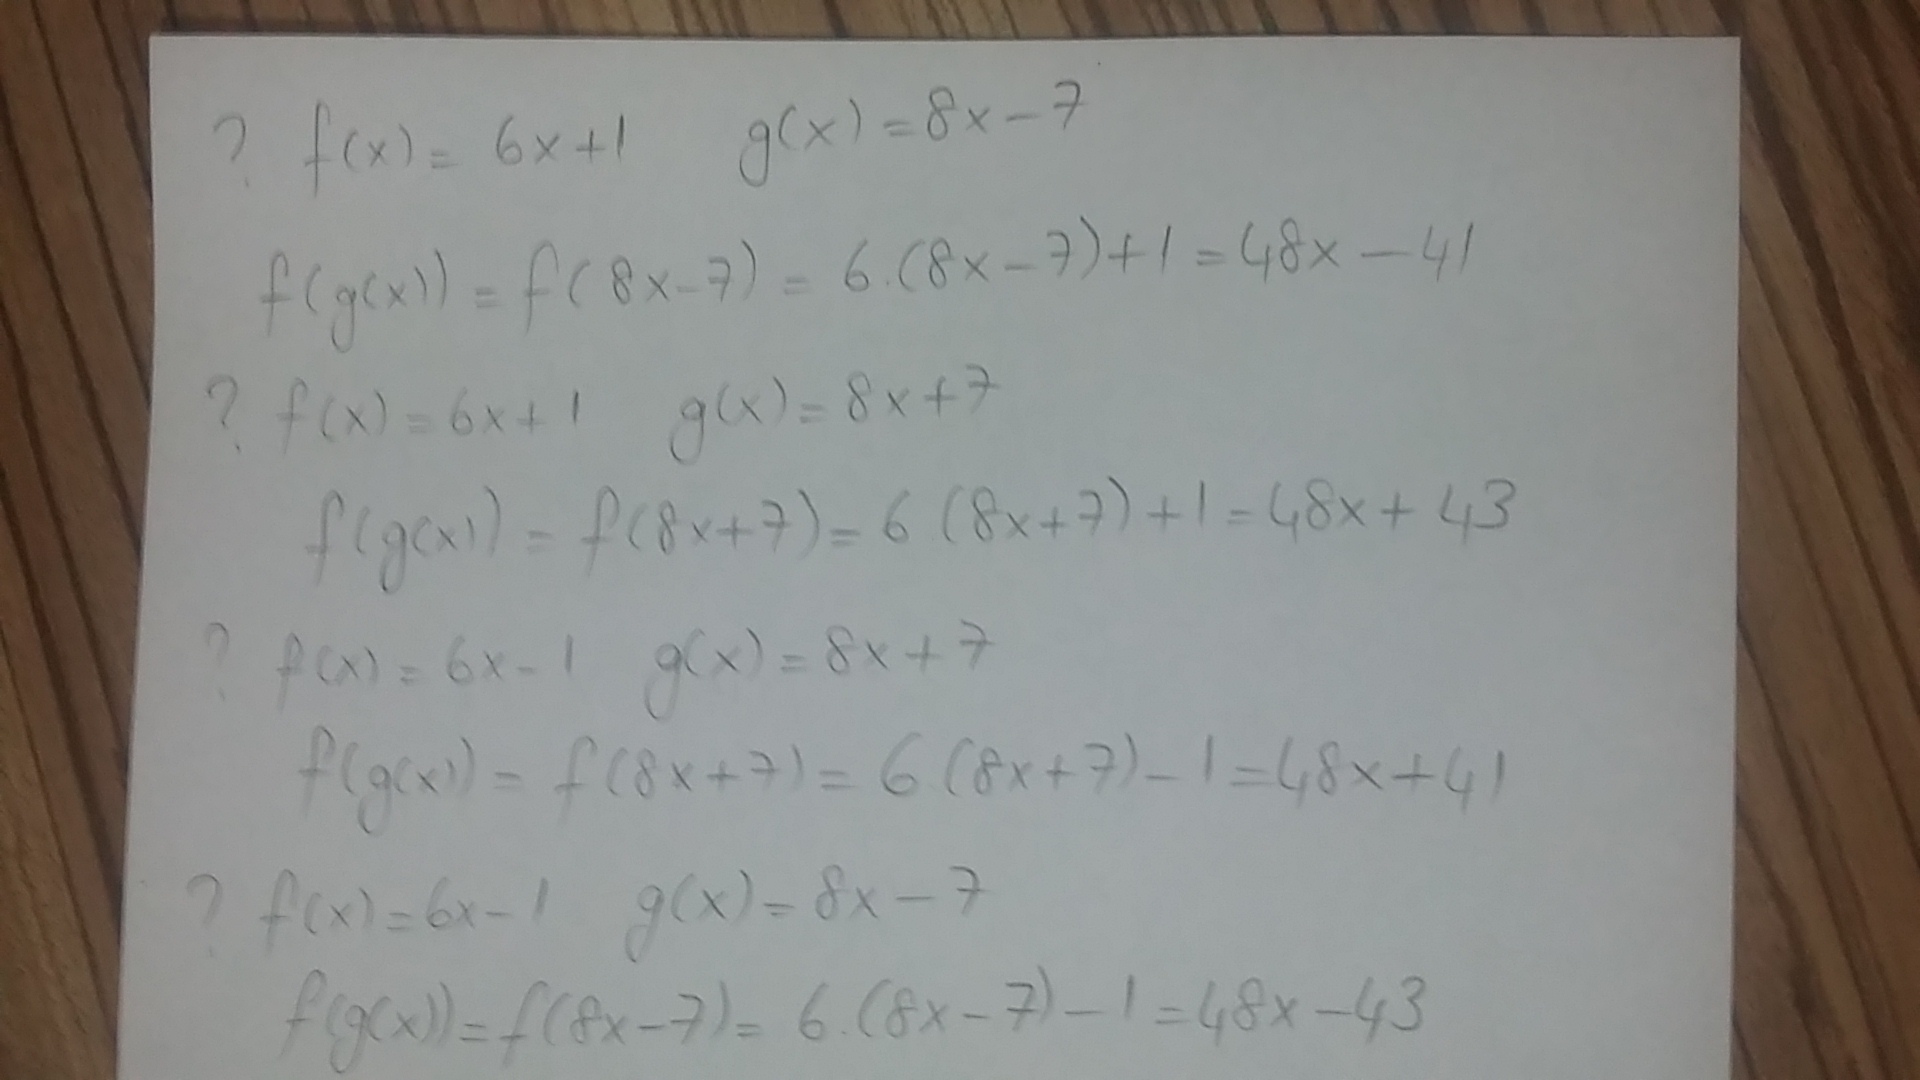 ? f(x) = 6x+1 g(x) = 8x-7
f(g(x)) = f(8x-7) = 6.(8x-7)+1 = 48x-41
? f(x) = 6x+1 g(x) = 8x+7
f(g(x)) = f(8x+7) = 6(8x+7)+1 = 48x+43
? f(x) = 6x-1 g(x) = 8x+7
f(g(x)) = f(8x+7) = 6(8x+7)-1 = 48x+41
? f(x) = 6x-1 g(x) = 8x-7
f(g(x)) = f(8x-7) = 6.(8x-7)-1 = 48x-43